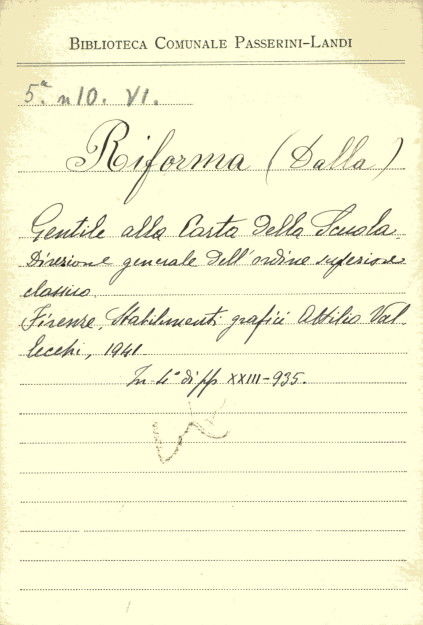 BIBLIOTECA COMUNALE PASSERINI-LANDI
5.ª n 10. VI.
Riforma (Dalla)
Gentile alla Carta della Scuola.
Direzione generale dell'ordine superiore
classico
Firenze, Stabilimenti grafici Attilio Val
lecchi, 1941
In 4° di pp XXIII-935.